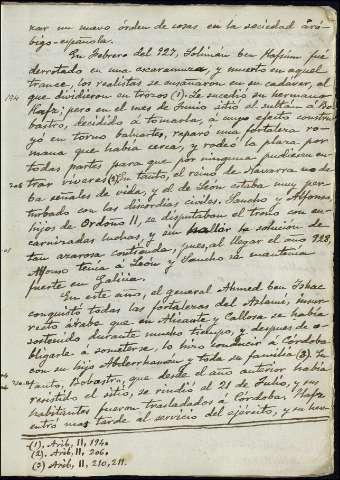 rar un nuevo órden de cosas en la sociedad ará-
bigo-española.
En Febrero del 927, Solimán ben Hafsun fué
derrotado en una escaramuza, y muerto en aquel
trance, los realistas se ensañaron en su cadáver, al
que dividieron en trozos (1). Le sucedió su hermano
Hafs; pero en el mes de Junio sitió el sultán á Bo-
bastro, decidido á tomarla, á cuyo efecto constru-
yó en torno baluartes, reparó una fortaleza ro-
mana que había cerca, y rodeó la plaza por
todas partes para que por ninguna pudiesen en-
trar víveres (2). En tanto, el reino de Navarra no da-
ba señales de vida, y el de León estaba muy per-
turbado con las discordias civiles. Sancho y Alfonso,
hijos de Ordoño II, se disputaban el trono con en-
carnizadas luchas, y sin hallar la solución de
tan azarosa contienda, pues, al llegar el año 928,
Alfonso tenía á León y Sancho se mantenía
fuerte en Galicia.
En este año, el general Ahmed ben Ishac
conquistó todas las fortalezas del Aslami, insur-
recto árabe que en Alicante y Callosa se había
sostenido durante mucho tiempo, y despues de o-
bligarle á someterse, lo hizo conducir á Córdoba
con su hijo Abderrhaman y toda su familia (3). En
tanto, Bobastro, que desde el año anterior había
resistido el sitio, se rindió el 21 de Julio, y sus
habitantes fueron trasladados á Córdoba. Hafs
entró mas tarde al servicio del ejército, y su her-
(1). Arib, II, 194.
(2). Arib, II, 206.
(3) Arib, II, 210, 211.
194
206